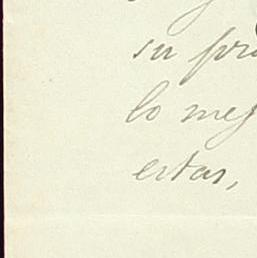 su pr
lo mej
estas,